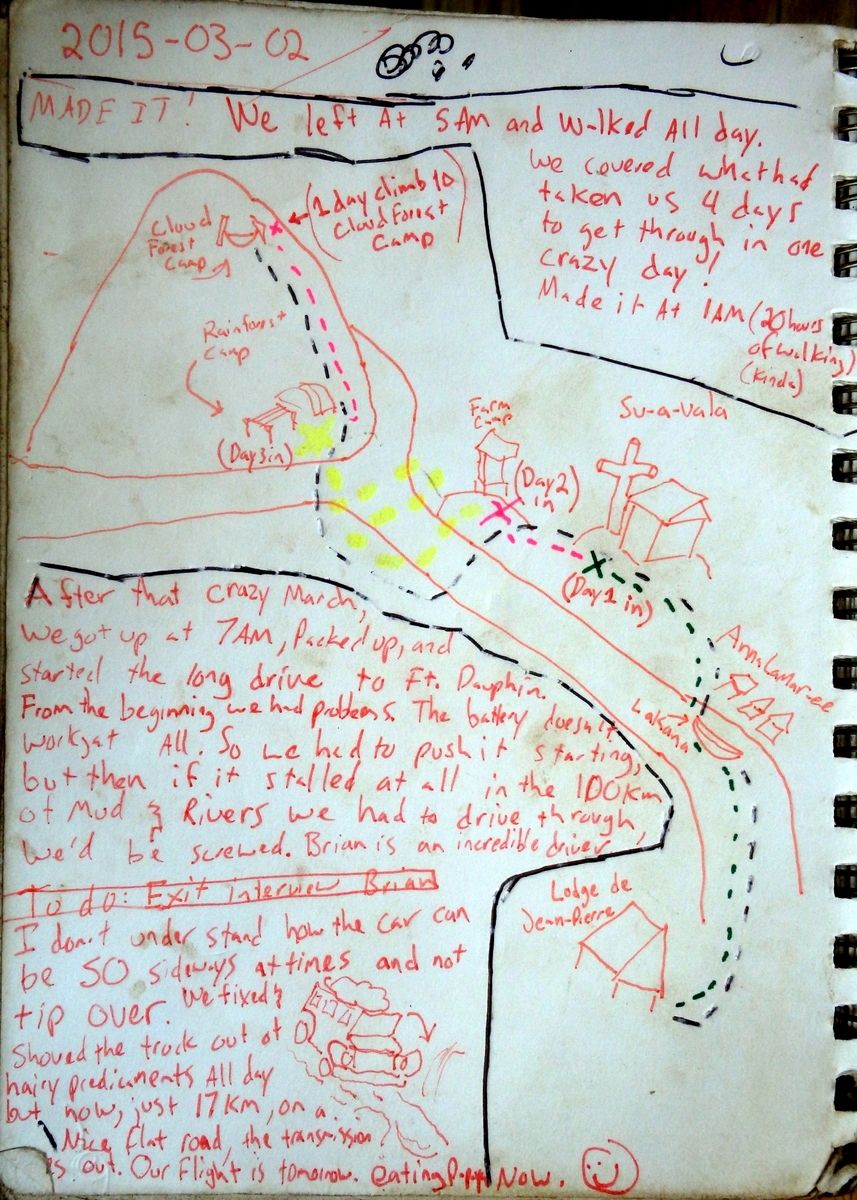 2015-03-02
MADE IT! We left At 5AM and Walked All day.
We covered what had
taken us 4 days
to get through in one
crazy day!
Made it At 1AM (20 hours
of walking)
(kinda)
(1 day climb to
Cloud Forest
Camp)
Cloud
Forest
Camp
Rainforest
Camp
(Day 3 in)
Farm
Camp
(Day 2
in)
Su-a-vala
(Day 1 in)
Lakana
Lodge de
Jean-Pierre
After that crazy March,
we got up at 7AM, Packed up, and
started the long drive to Ft. Dauphin.
From the beginning we had problems. The battery doesn't
work at All. So we had to push it starting,
but then if it stalled at all in the 100km
of Mud & Rivers we had to drive through,
we'd be screwed. Brian is an incredible driver,
To do: Exit interview Brian
I don't understand how the car can
be SO sideways at times and not
tip over. We fixed &
Shoved the truck out of
hairy predicaments All day
but now, just 17km, on a
Nice flat road, the transmission
out. Our Flight is tomorrow. eating Now.